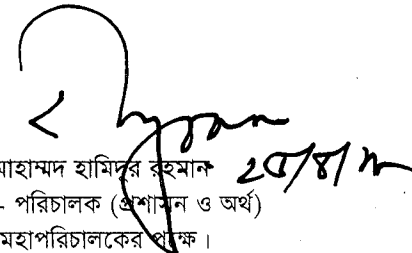 মোহাম্মদ হামিদুর রহমান
- পরিচালক (প্রশাসন ও অর্থ)
মহাপরিচালকের পক্ষে।